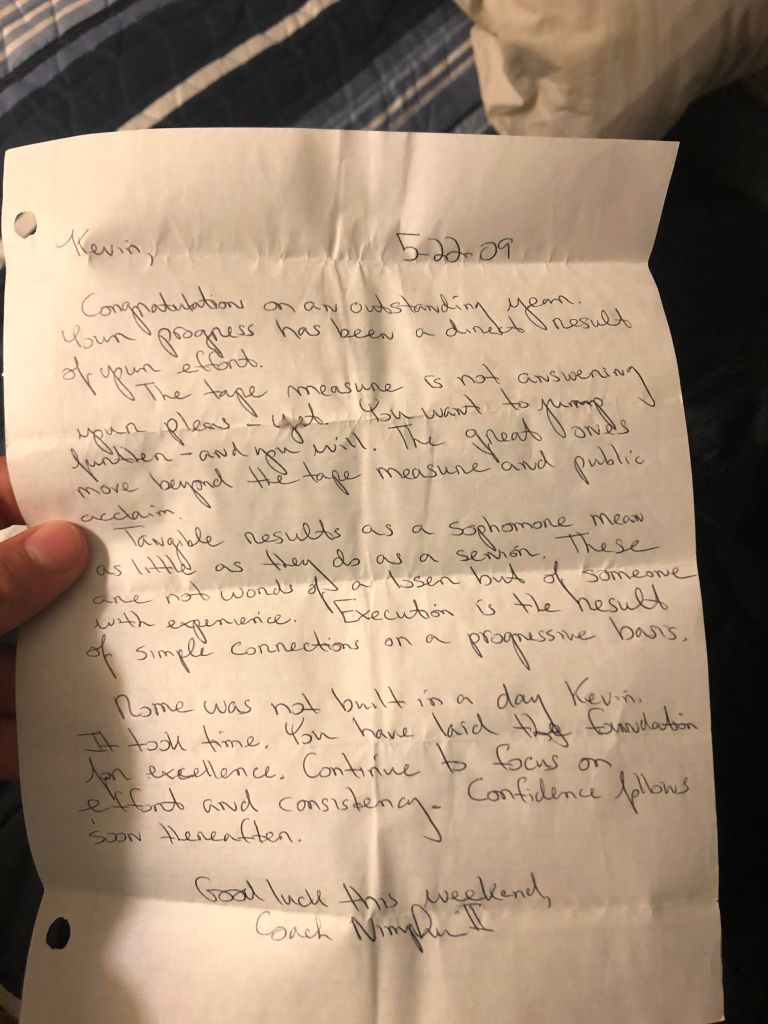 Kevin, 5-22-09
Congratulation on an outstanding year.
Your progress has been a direct result
of your effort.
The tape measure is not answering
your pleas - yet. You want to jump
further - and you will. The great ones
move beyond the tape measure and public
acclaim.
Tangible results as a sophomore mean
as little as they do as a senior. These
are not words of a loser but of someone
with experience. Execution is the result
of simple connections on a progressive basis.
Rome was not built in a day Kevin.
It took time. You have laid the foundation
for excellence. Continue to focus on
effort and consistency. Confidence follows
soon thereafter.
Good luck this weekend,
Coach II